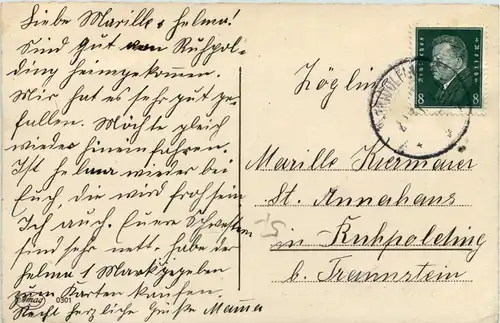 Liebe Marille u Helma!
Sind gut von Ruhpol-
ding heimgekommen.
Mir hat es sehr gut ge-
fallen. Möchte gleich
wieder hineinfahren.
Ist Helma wieder bei
Euch, die wird froh sein
Ich auch. Euere Schwestern
sind sehr nett. habe der
Helma 1 Mark gegeben
zum Karten kaufen.
Recht herzliche Grüße Mamma
0301
Zögling
Marille Kiermaier
St. Annahaus
in Ruhpolding
b. Traunstein
8 8